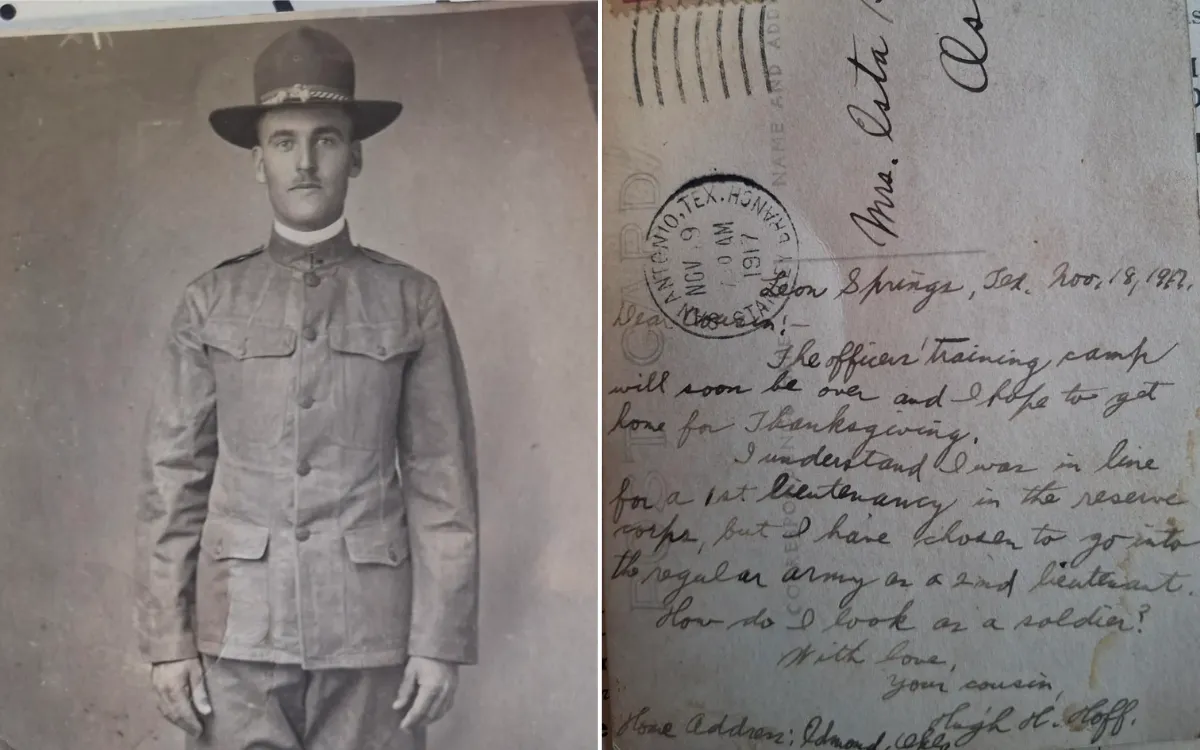 Mrs. Esta
As
SAN ANTONIO, TEX.
STANLEY BRANCH
NOV 19
AM
1917
NAME AND ADD
Leon Springs, Tex. Nov. 18, 1917.
Dear Cousin:—
The officers' training camp
will soon be over and I hope to get
home for Thanksgiving.
I understand I was in line
for a 1st lieutenancy in the reserve
corps, but I have chosen to go into
the regular army as a 2nd lieutenant.
How do I look as a soldier?
With love,
Your cousin,
Hugh H. Hoff.
Home Address: Edmond, Okla.
POST CARD